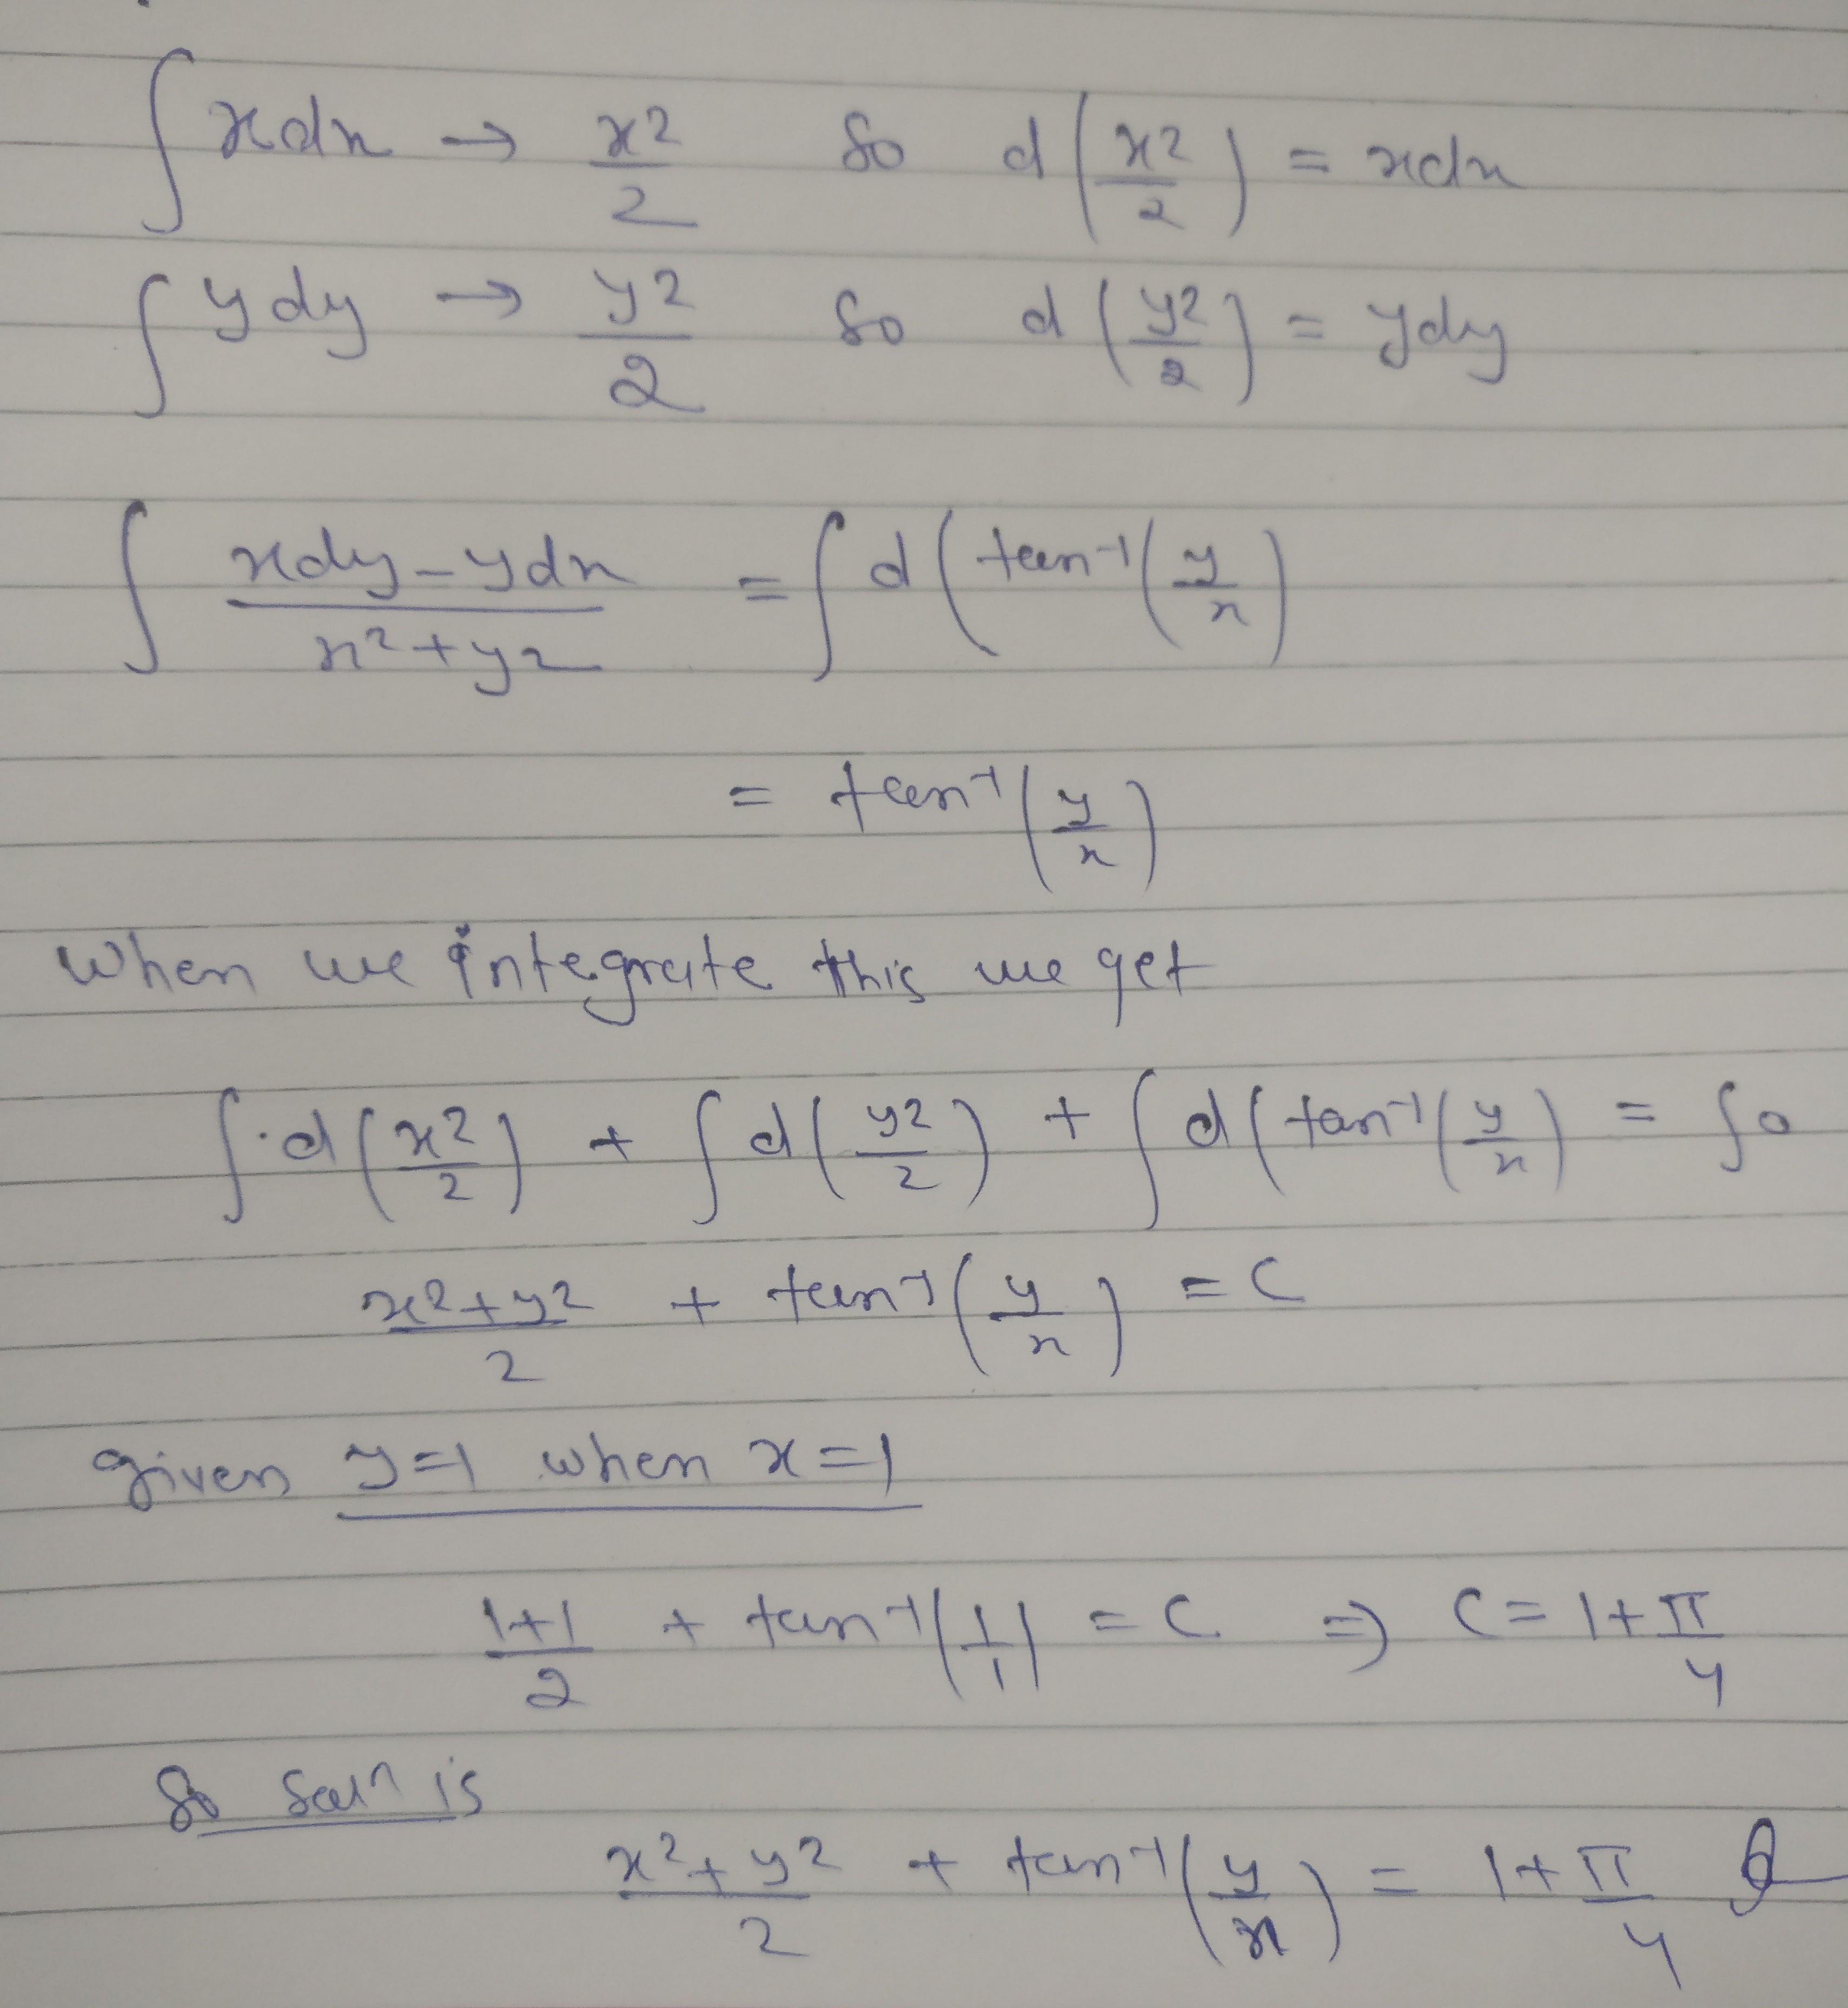 ∫ xdx → x²/2 So d(x²/2) = xdx
∫ ydy → y²/2 So d(y²/2) = ydy
∫ (xdy-ydx)/(x²+y²) = ∫d(tan⁻¹(y/x)
= tan⁻¹(y/x)
When we integrate this we get
∫d(x²/2) + ∫d(y²/2) + ∫d(tan⁻¹(y/x) = ∫0
(x²+y²)/2 + tan⁻¹(y/x) = C
given y=1 when x=1
(1+1)/2 + tan⁻¹(1/1) = C ⇒ C = 1+π/4
So Solⁿ is
(x²+y²)/2 + tan⁻¹(y/x) = 1+π/4